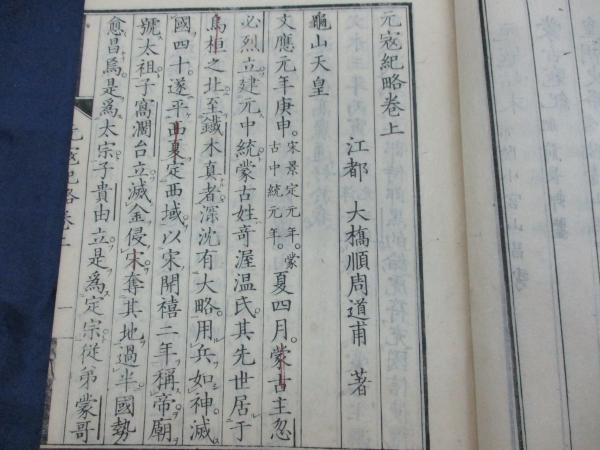 元寇紀略卷上
江都　大橋順周道甫　著
龜山天皇
文應元年庚申。宋景定元年。蒙古中統元年。夏四月。蒙古主忽
必烈立建元中統。蒙古姓奇渥温氏。其先世居于
烏桓之北。至鐵木真者。深沈有大略。用兵如神。滅
國四十。遂平西夏。定西域。以宋開禧二年稱帝。廟
號太祖。子窩濶台立。滅金侵宋。奪其地過半。國勢
愈昌。爲是爲太宗。子貴由立。是爲定宗。從弟蒙哥
元寇紀略卷上
一